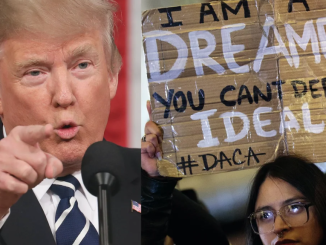 I AM A
DREAME
YOU CAN'T DEP
IDEAL
#DACA